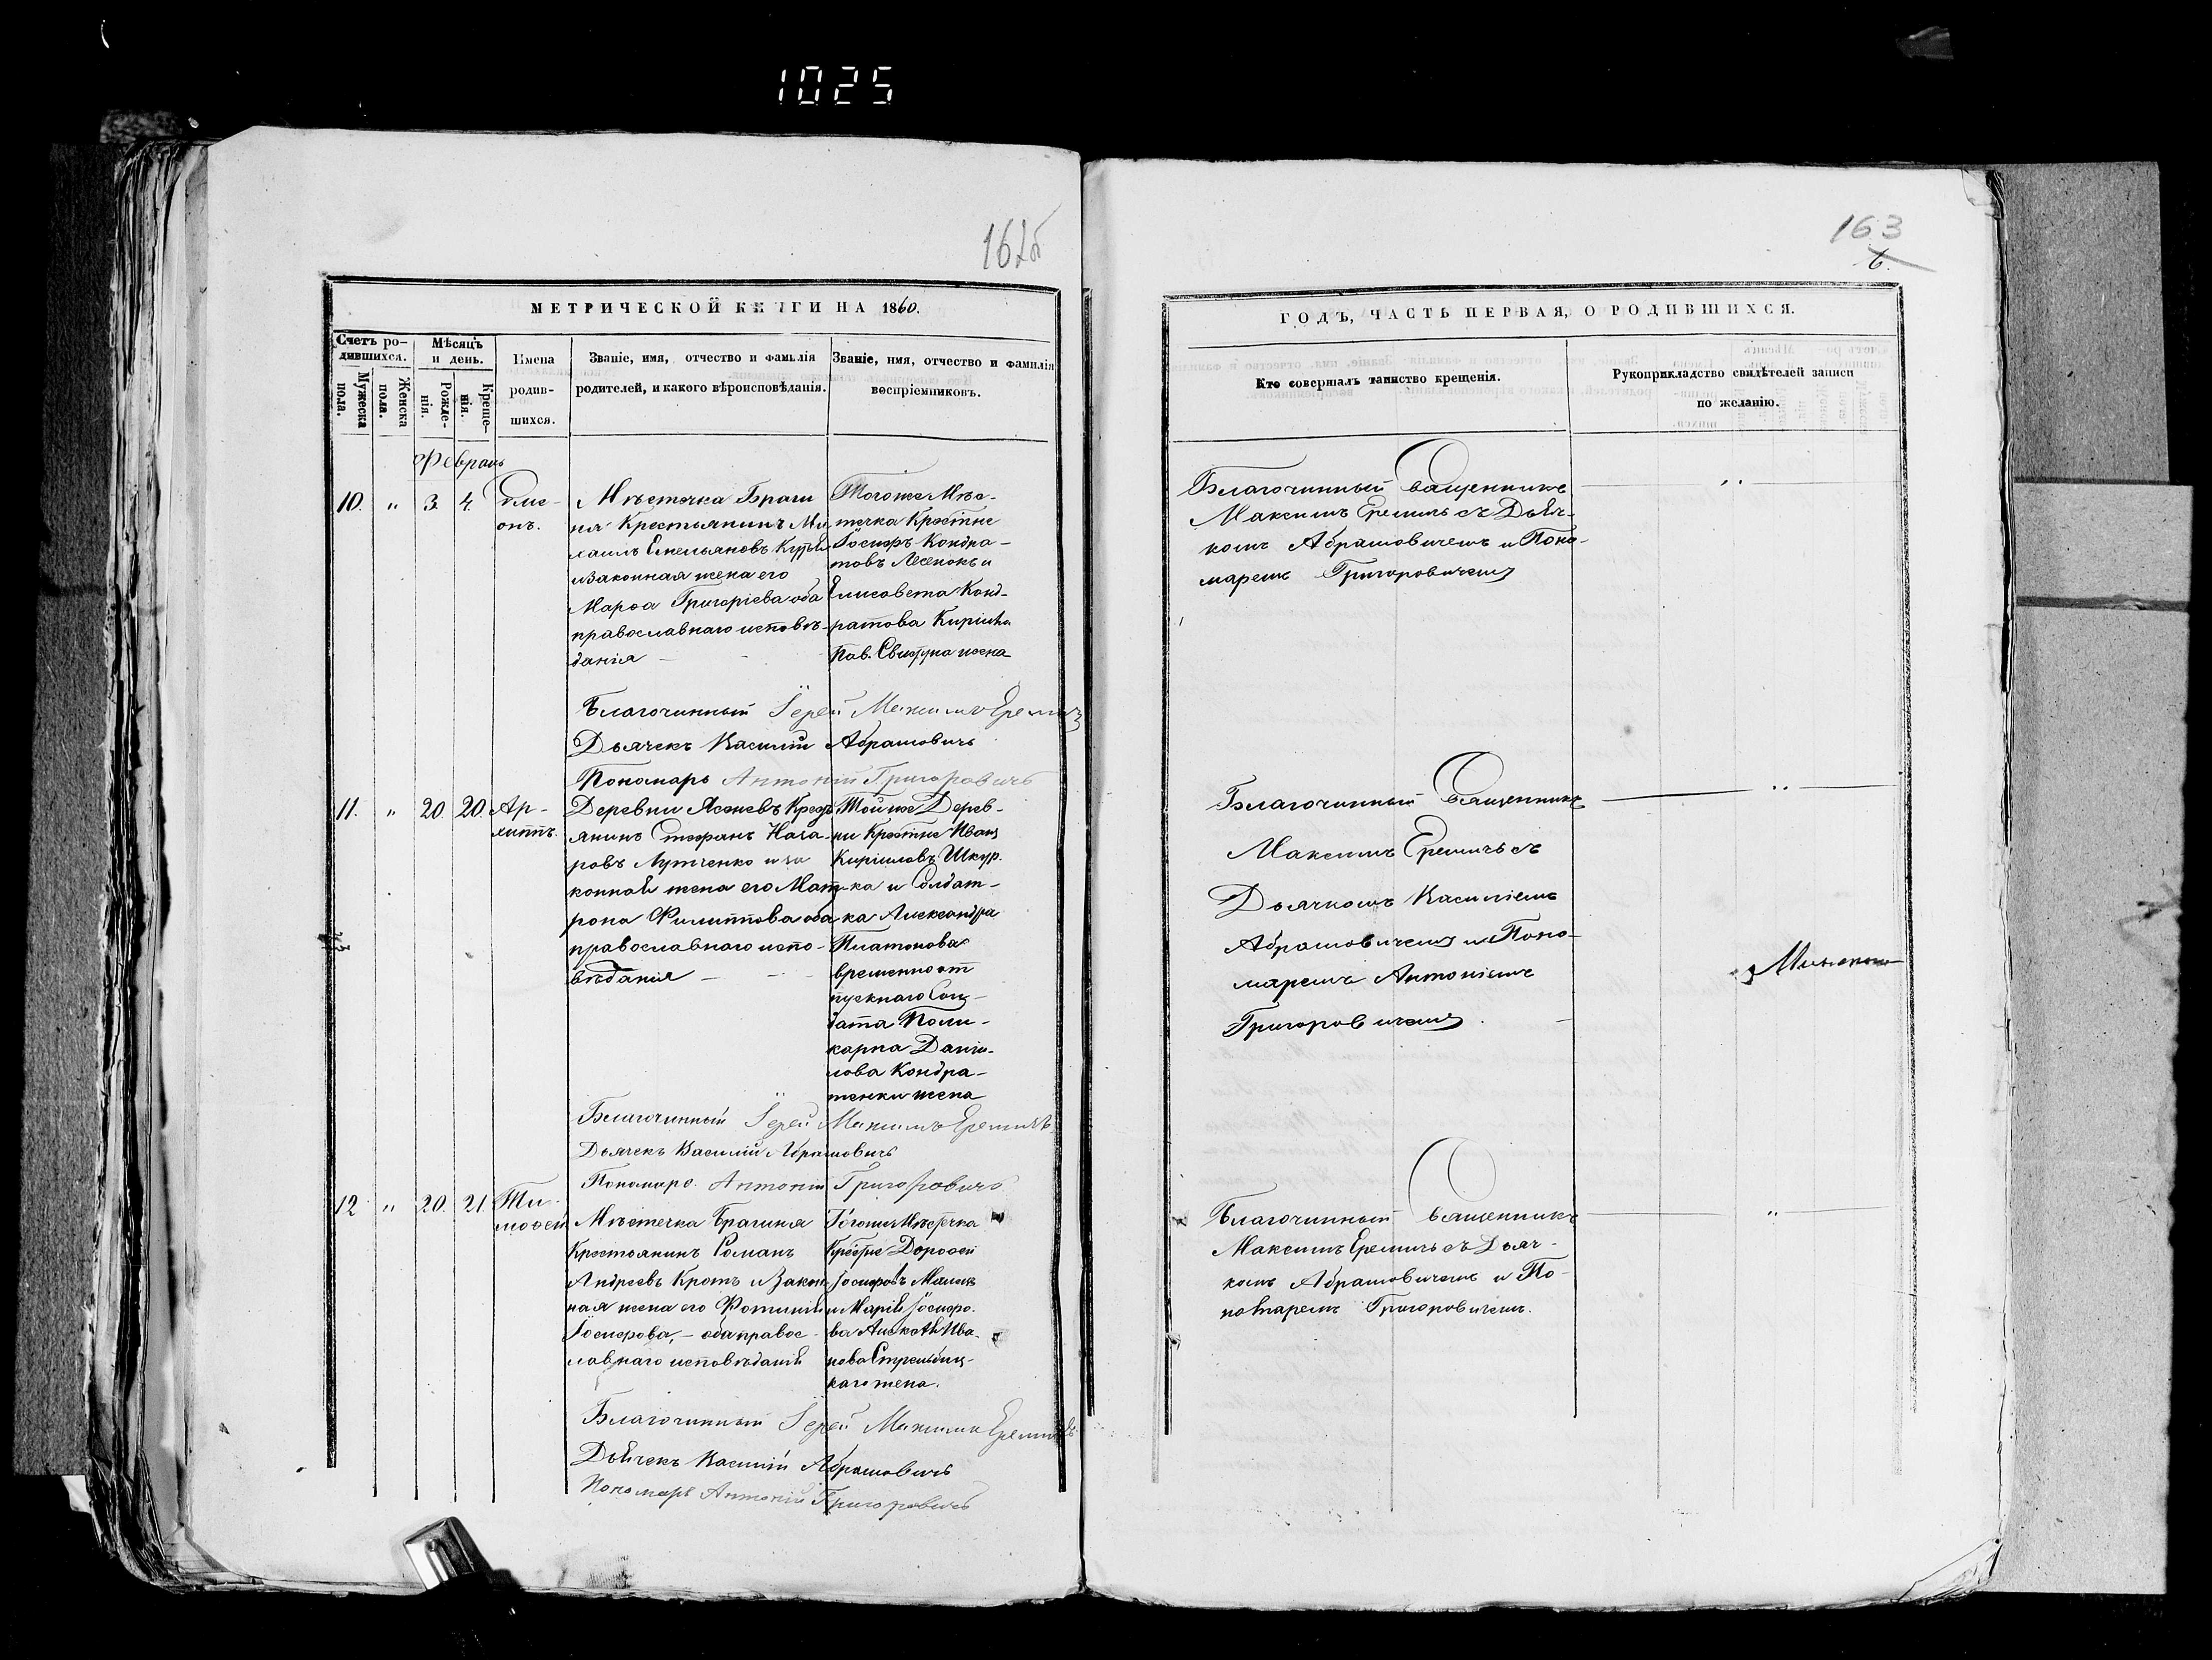 1025
162об
МЕТРИЧЕСКОЙ КНИГИ НА 1860.
Счетъ ро-
дившихся.
Мужеска
пола.
Женска
пола.
Мѣсяцъ
и день.
Рожде-
нія.
Креще-
нія.
Имена
родив-
шихся.
Званіе, имя, отчество и фамилія
родителей, и какого вѣроисповѣданія.
Званіе, имя, отчество и фамилія
воспріемниковъ.
Февраль
10. " 3. 4.
онъ.
Мѣстечка Браги
ня Крестьянинъ Ми
хаилъ Емельяновъ
и Законная жена его
Марѳа Григоріева оба
православнаго исповѣ-
данія
Тогоже Мѣс-
течка Крестьне
Іосифъ Кондра-
товъ Лесенокъ и
Елисовета Конд-
ратова Киріила
Пав. Свистуна жена
Благочинный Іерей Максимъ Еремичъ
Дьячекъ Василій Абрамовичъ
Пономарь Антоній Григоровичъ
11. " 20. 20. Ар-
хиппъ.
Деревни Ясеневъ Крест
янинъ Стефанъ Наза-
ровъ Лутченко и за
конная жена его Мат
рона Филиппова оба
православнаго испо-
вѣданія
Той же Дерев-
ни Крестьне Иванъ
Кириловъ Шкур.
ка и Солдат-
ка Александра
Платонова
временноот
пускнаго Сол-
дата Поли-
карпа Дани-
лова Кондра-
тенки жена
Благочинный Іерей Максимъ Еремичъ
Дьячекъ Василій Абрамовичъ
Пономарь Антоній Григоровичъ
12 " 20. 21. Ти-
моѳей
Мѣстечка Брагиня
Крестьянинъ Романъ
Андреевъ Кротъ и Закон-
ная жена его Фотинія
Іосифова, – оба правос-
лавнаго исповѣданія
Тогоже Мѣстечка
Дороѳей
Іосифовъ
и Марія Іосифо.
ва Алексѣя Ива-
нова Стрельбиц-
каго жена.
Благочинный Іерей Максимъ Еремичъ
Дьячекъ Василій Абрамовичъ
Пономарь Антоній Григоровичъ
163
6.
ГОДЪ, ЧАСТЬ ПЕРВАЯ, О РОДИВШИХСЯ.
Кто совершалъ таинство крещенія.
Рукоприкладство свидѣтелей записи
по желанію.
Благочинный Священникъ
Максимъ Еремичъ съ Дьяч-
комъ Абрамовичемъ и Поно-
маремъ Григоровичемъ
Благочинный Священникъ
Максимъ Еремичъ съ
Дьячкомъ Василіемъ
Абрамовичемъ и Поно-
маремъ Антоніемъ
Григоровичемъ.
Благочинный Священникъ
Максимъ Еремичъ съ Дьяч-
комъ Абрамовичемъ и По-
номаремъ Григоровичемъ.